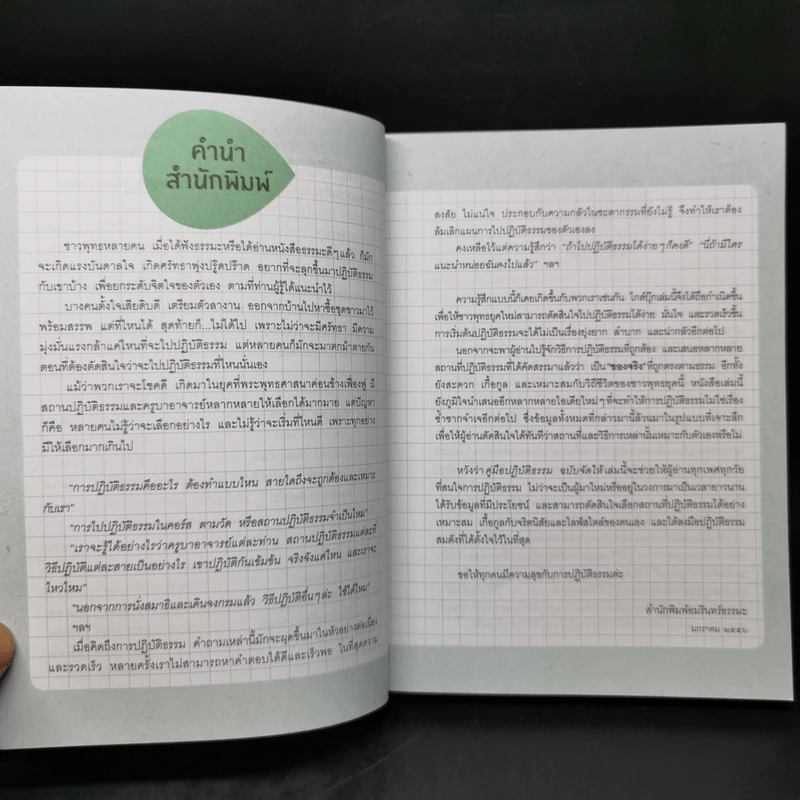 คำนำ
สำนักพิมพ์
ชาวพุทธหลายคน เมื่อได้ฟังธรรมะหรือได้อ่านหนังสือธรรมะดีๆ แล้ว ก็มัก
จะเกิดแรงบันดาลใจ เกิดศรัทธาพุ่งปรู๊ดปร๊าด อยากที่จะลุกขึ้นมาปฏิบัติธรรม
กับเขาบ้าง เพื่อยกระดับจิตใจของตัวเอง ตามที่ท่านผู้รู้ได้แนะนำไว้
บางคนตั้งใจเสียดิบดี เตรียมตัวลางาน ออกจากบ้านไปหาซื้อชุดขาวมาไว้
พร้อมสรรพ แต่ที่ไหนได้ สุดท้ายก็...ไม่ได้ไป เพราะไม่ว่าจะมีศรัทธา มีความ
มุ่งมั่นแรงกล้าแค่ไหนที่จะไปปฏิบัติธรรม แต่หลายคนก็มักจะมาตกม้าตายกัน
ตอนที่ต้องตัดสินใจว่าจะไปปฏิบัติธรรมที่ไหนนั่นเอง
แม้ว่าพวกเราจะโชคดี เกิดมาในยุคที่พระพุทธศาสนาค่อนข้างเฟื่องฟู มี
สถานปฏิบัติธรรมและครูบาอาจารย์หลากหลายให้เลือกได้มากมาย แต่ปัญหา
ก็คือ หลายคนไม่รู้ว่าจะเลือกอย่างไร และไม่รู้ว่าจะเริ่มที่ไหนดี เพราะทุกอย่าง
มีให้เลือกมากเกินไป
“การปฏิบัติธรรมคืออะไร ต้องทำแบบไหน สายใดถึงจะถูกต้องและเหมาะ
กับเรา”
“การไปปฏิบัติธรรมในคอร์ส ตามวัด หรือสถานปฏิบัติธรรมจำเป็นไหม”
“เราจะรู้ได้อย่างไรว่าครูบาอาจารย์แต่ละท่าน สถานปฏิบัติธรรมแต่ละที่
วิธีปฏิบัติแต่ละสายเป็นอย่างไร เขาปฏิบัติกันเข้มข้น จริงจังแค่ไหน และเราจะ
ไหวไหม”
“นอกจากการนั่งสมาธิและเดินจงกรมแล้ว วิธีปฏิบัติอื่นๆ ล่ะ ใช้ได้ไหม”
ฯลฯ
เมื่อคิดถึงการปฏิบัติธรรม คำถามเหล่านี้มักจะผุดขึ้นมาในหัวอย่างต่อเนื่อง
และรวดเร็ว หลายครั้งเราไม่สามารถหาคำตอบได้ดีและเร็วพอ ในที่สุดความ
สงสัย ไม่แน่ใจ ประกอบกับความกลัวในชะตากรรมที่ยังไม่รู้ จึงทำให้เราต้อง
ล้มเลิกแผนการไปปฏิบัติธรรมของตัวเองลง
คงเหลือไว้แต่ความรู้สึกว่า “ถ้าไปปฏิบัติธรรมได้ง่ายๆ ก็คงดี” “นี่ถ้ามีใคร
แนะนำหน่อยฉันคงไปแล้ว” ฯลฯ
ความรู้สึกแบบนี้ก็เคยเกิดขึ้นกับพวกเราเช่นกัน ไกด์บุ๊กเล่มนี้จึงได้ถือกำเนิดขึ้น
เพื่อให้ชาวพุทธยุคใหม่สามารถตัดสินใจไปปฏิบัติธรรมได้ง่าย มั่นใจ และรวดเร็วขึ้น
การเริ่มต้นปฏิบัติธรรมจะได้ไม่เป็นเรื่องยุ่งยาก ลำบาก และน่ากลัวอีกต่อไป
นอกจากจะพาผู้อ่านไปรู้จักวิธีการปฏิบัติธรรมที่ถูกต้อง และเสนอหลากหลาย
สถานที่ปฏิบัติธรรมที่ได้คัดสรรมาแล้วว่า เป็น “ของจริง” ที่ถูกตรงตามธรรม อีกทั้ง
ยังสะดวก เกื้อกูล และเหมาะสมกับวิถีชีวิตของชาวพุทธยุคนี้ หนังสือเล่มนี้
ยังภูมิใจนำเสนออีกหลากหลายไอเดียใหม่ๆ ที่จะทำให้การปฏิบัติธรรมไม่ใช่เรื่อง
ซ้ำซากจำเจอีกต่อไป ซึ่งข้อมูลทั้งหมดที่กล่าวมานี้ล้วนมาในรูปแบบที่เจาะลึก
เพื่อให้ผู้อ่านตัดสินใจได้ทันทีว่าสถานที่และวิธีการเหล่านั้นเหมาะกับตัวเองหรือไม่
หวังว่า คู่มือปฏิบัติธรรม ฉบับจัดให้เล่มนี้จะช่วยให้ผู้อ่านทุกเพศทุกวัย
ที่สนใจการปฏิบัติธรรม ไม่ว่าจะเป็นผู้มาใหม่หรืออยู่ในวงการมาเป็นเวลายาวนาน
ได้รับข้อมูลที่มีประโยชน์ และสามารถตัดสินใจเลือกสถานที่ปฏิบัติธรรมได้อย่าง
เหมาะสม เกื้อกูลกับจริตนิสัยและไลฟ์สไตล์ของตนเอง และได้ลงมือปฏิบัติธรรม
สมดังที่ได้ตั้งใจไว้ในที่สุด
ขอให้ทุกคนมีความสุขกับการปฏิบัติธรรมค่ะ
สำนักพิมพ์อมรินทร์ธรรมะ
มกราคม ๒๕๕๖